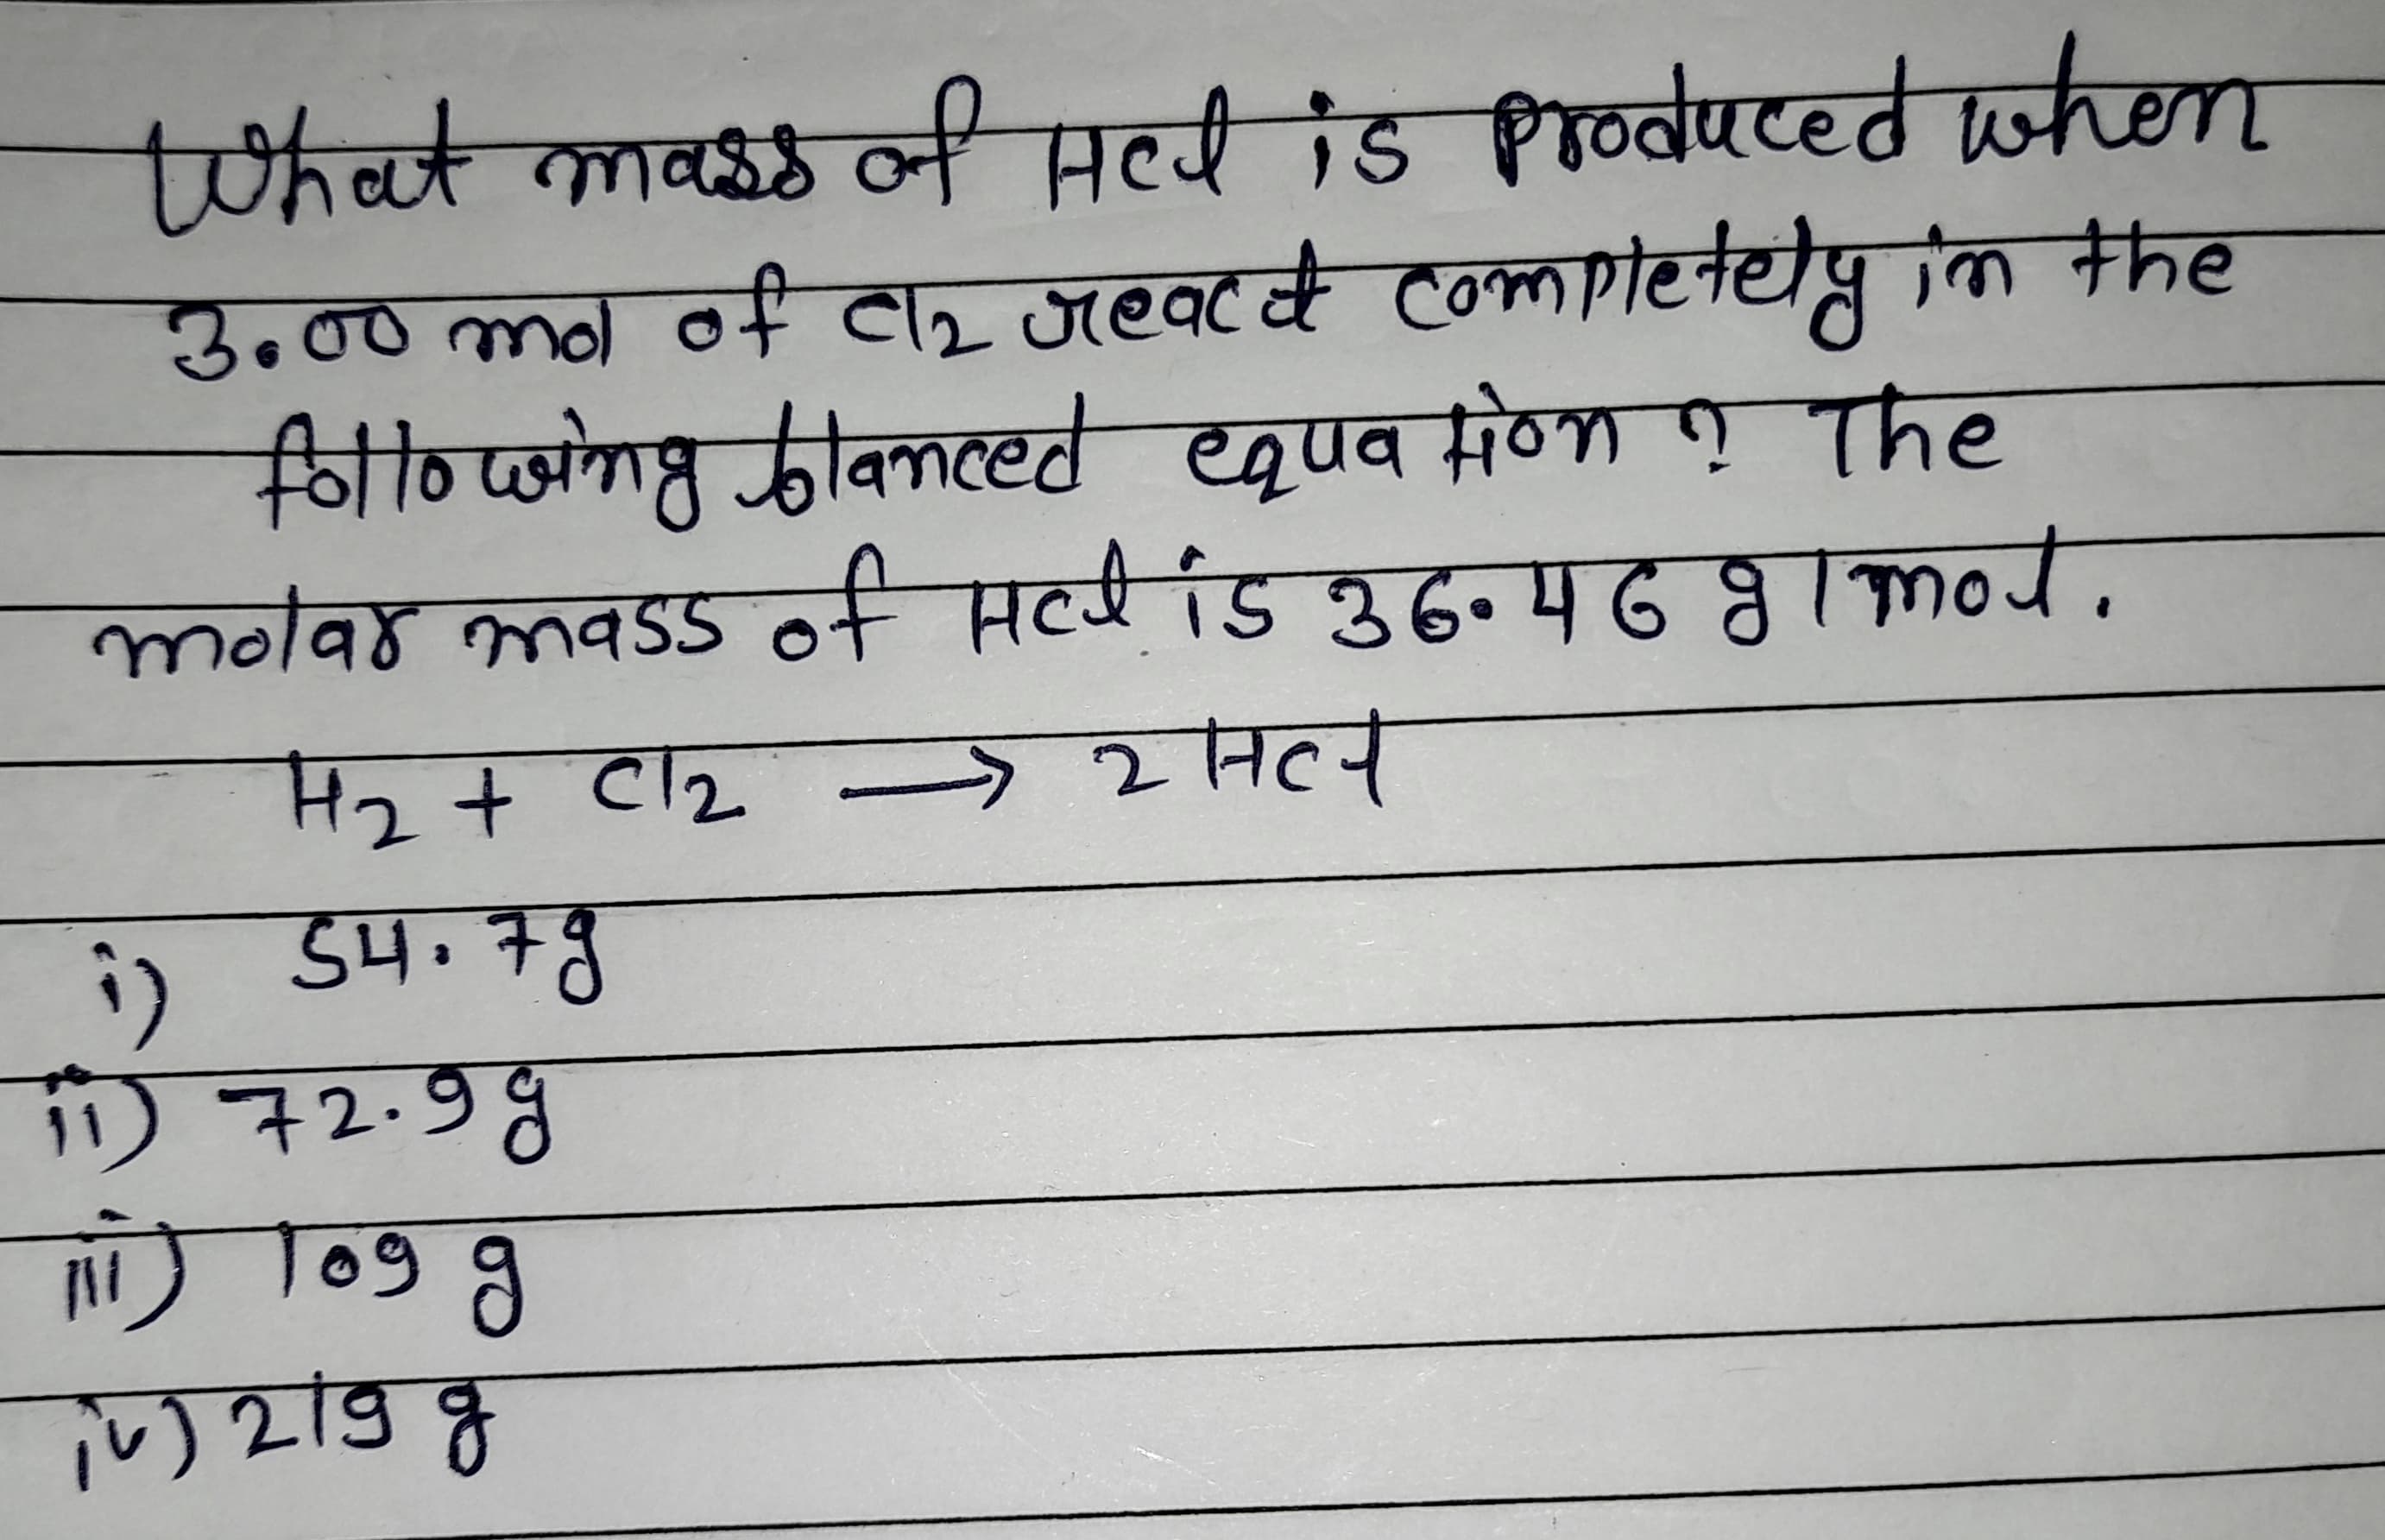 What mass of HCl is Produced when
3.00 mol of Cl2 react completely in the
following blanced equation ? The
molar mass of HCl is 36.46 g/mol.
H2 + Cl2 → 2 HCl
i) 54.7g
ii) 72.9 g
iii) 109 g
iv) 219 g